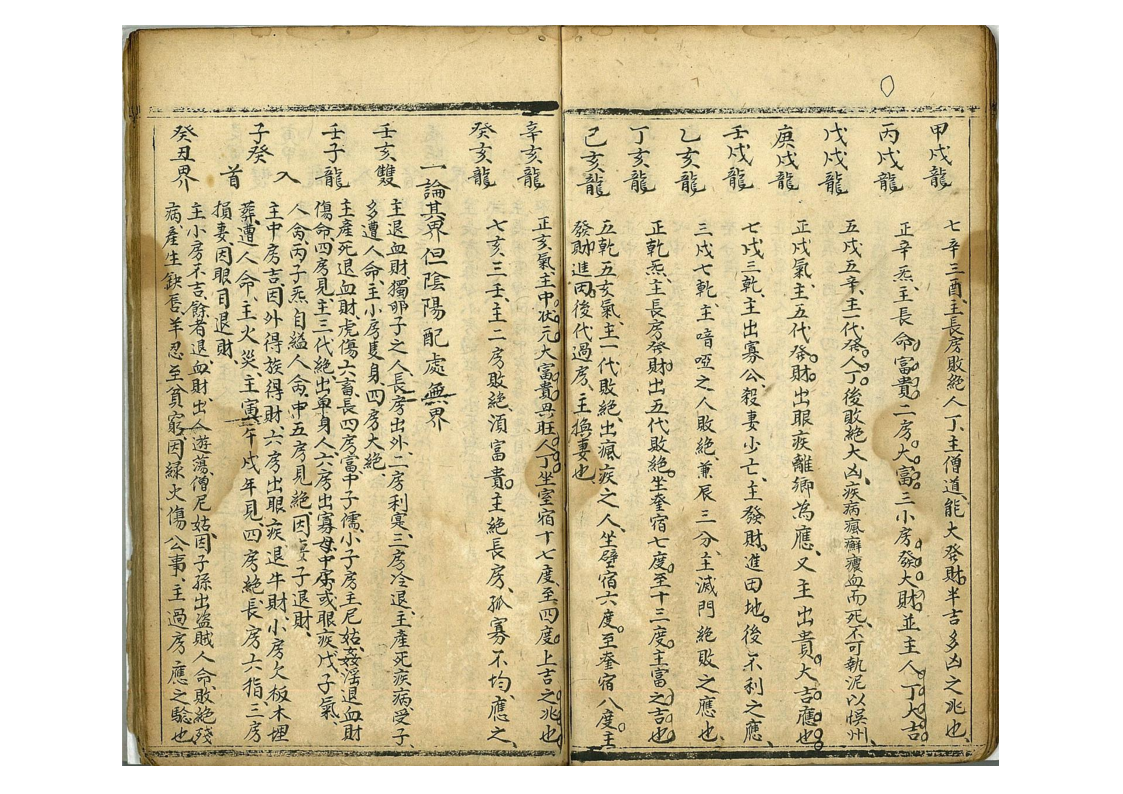 甲戌龍
七辛三酉、主長房敗絕人丁、主僧道能大發財半吉多凶之兆也、
丙戌龍
正辛炁、主長命富貴、二房大富三小房發大財並主人丁大吉
戊戌龍
五戌五辛、主一代發人丁後敗絕大凶疾病瘋癬癆血而死、不可執泥以悞州、
庚戌龍
正戌氣、主五代發財出眼疾離鄉為應、又主出貴大吉應也
壬戌龍
七戌三乾、主出寡公、殺妻少亡、主發財、進田地後不利之應、
乙亥龍
三戌七乾、主喑啞之人敗絕、兼辰三分、主滅門絕敗之應也、
丁亥龍
正乾炁、主長房發財出五代敗絕、坐奎宿七度至十三度主富之吉也
己亥龍
五乾五亥氣、主一代敗絕、出瘋疾之人、坐壁宿六度至奎宿八度主
發財進田後代過房、主換妻也
辛亥龍
正亥氣主中狀元大富貴丑旺人丁坐室宿十七度至四度上吉之兆也
癸亥龍
七亥三壬、主二房敗絕、須富貴、主絕長房、孤寡不均、應之、
一論其界但陰陽配處無界
壬亥雙
主退血財、獨卵子之人、長房出外、二房利寔、三房冷退、主產死疾病受子、
多遭人命、主小房隻身、四房大絕
壬子龍
主產死退血財、虎傷六畜、長四房富中子儒、小子房主尼姑、姦淫退血財
傷命、四房見主三代絕、出單身人六房出寡母中房或眼疾戊子氣、
人命、丙子炁自縊人命、中五房見絕、因子退財、
子癸
主中房吉、因外得族得財、六房出眼疾退牛財、小房欠板木埋
葬、遭人命、主火災、主寅午戌年見、四房絕長房六指、三房
損妻、因眼目退財、
入首
癸丑界
主小房不吉、餘者退血財、出人遊蕩、僧尼姑、因子孫出盜賊人命敗絕殘
病產生缺唇羊忍至貧窮、因綠火傷公事、主過房應之驗也